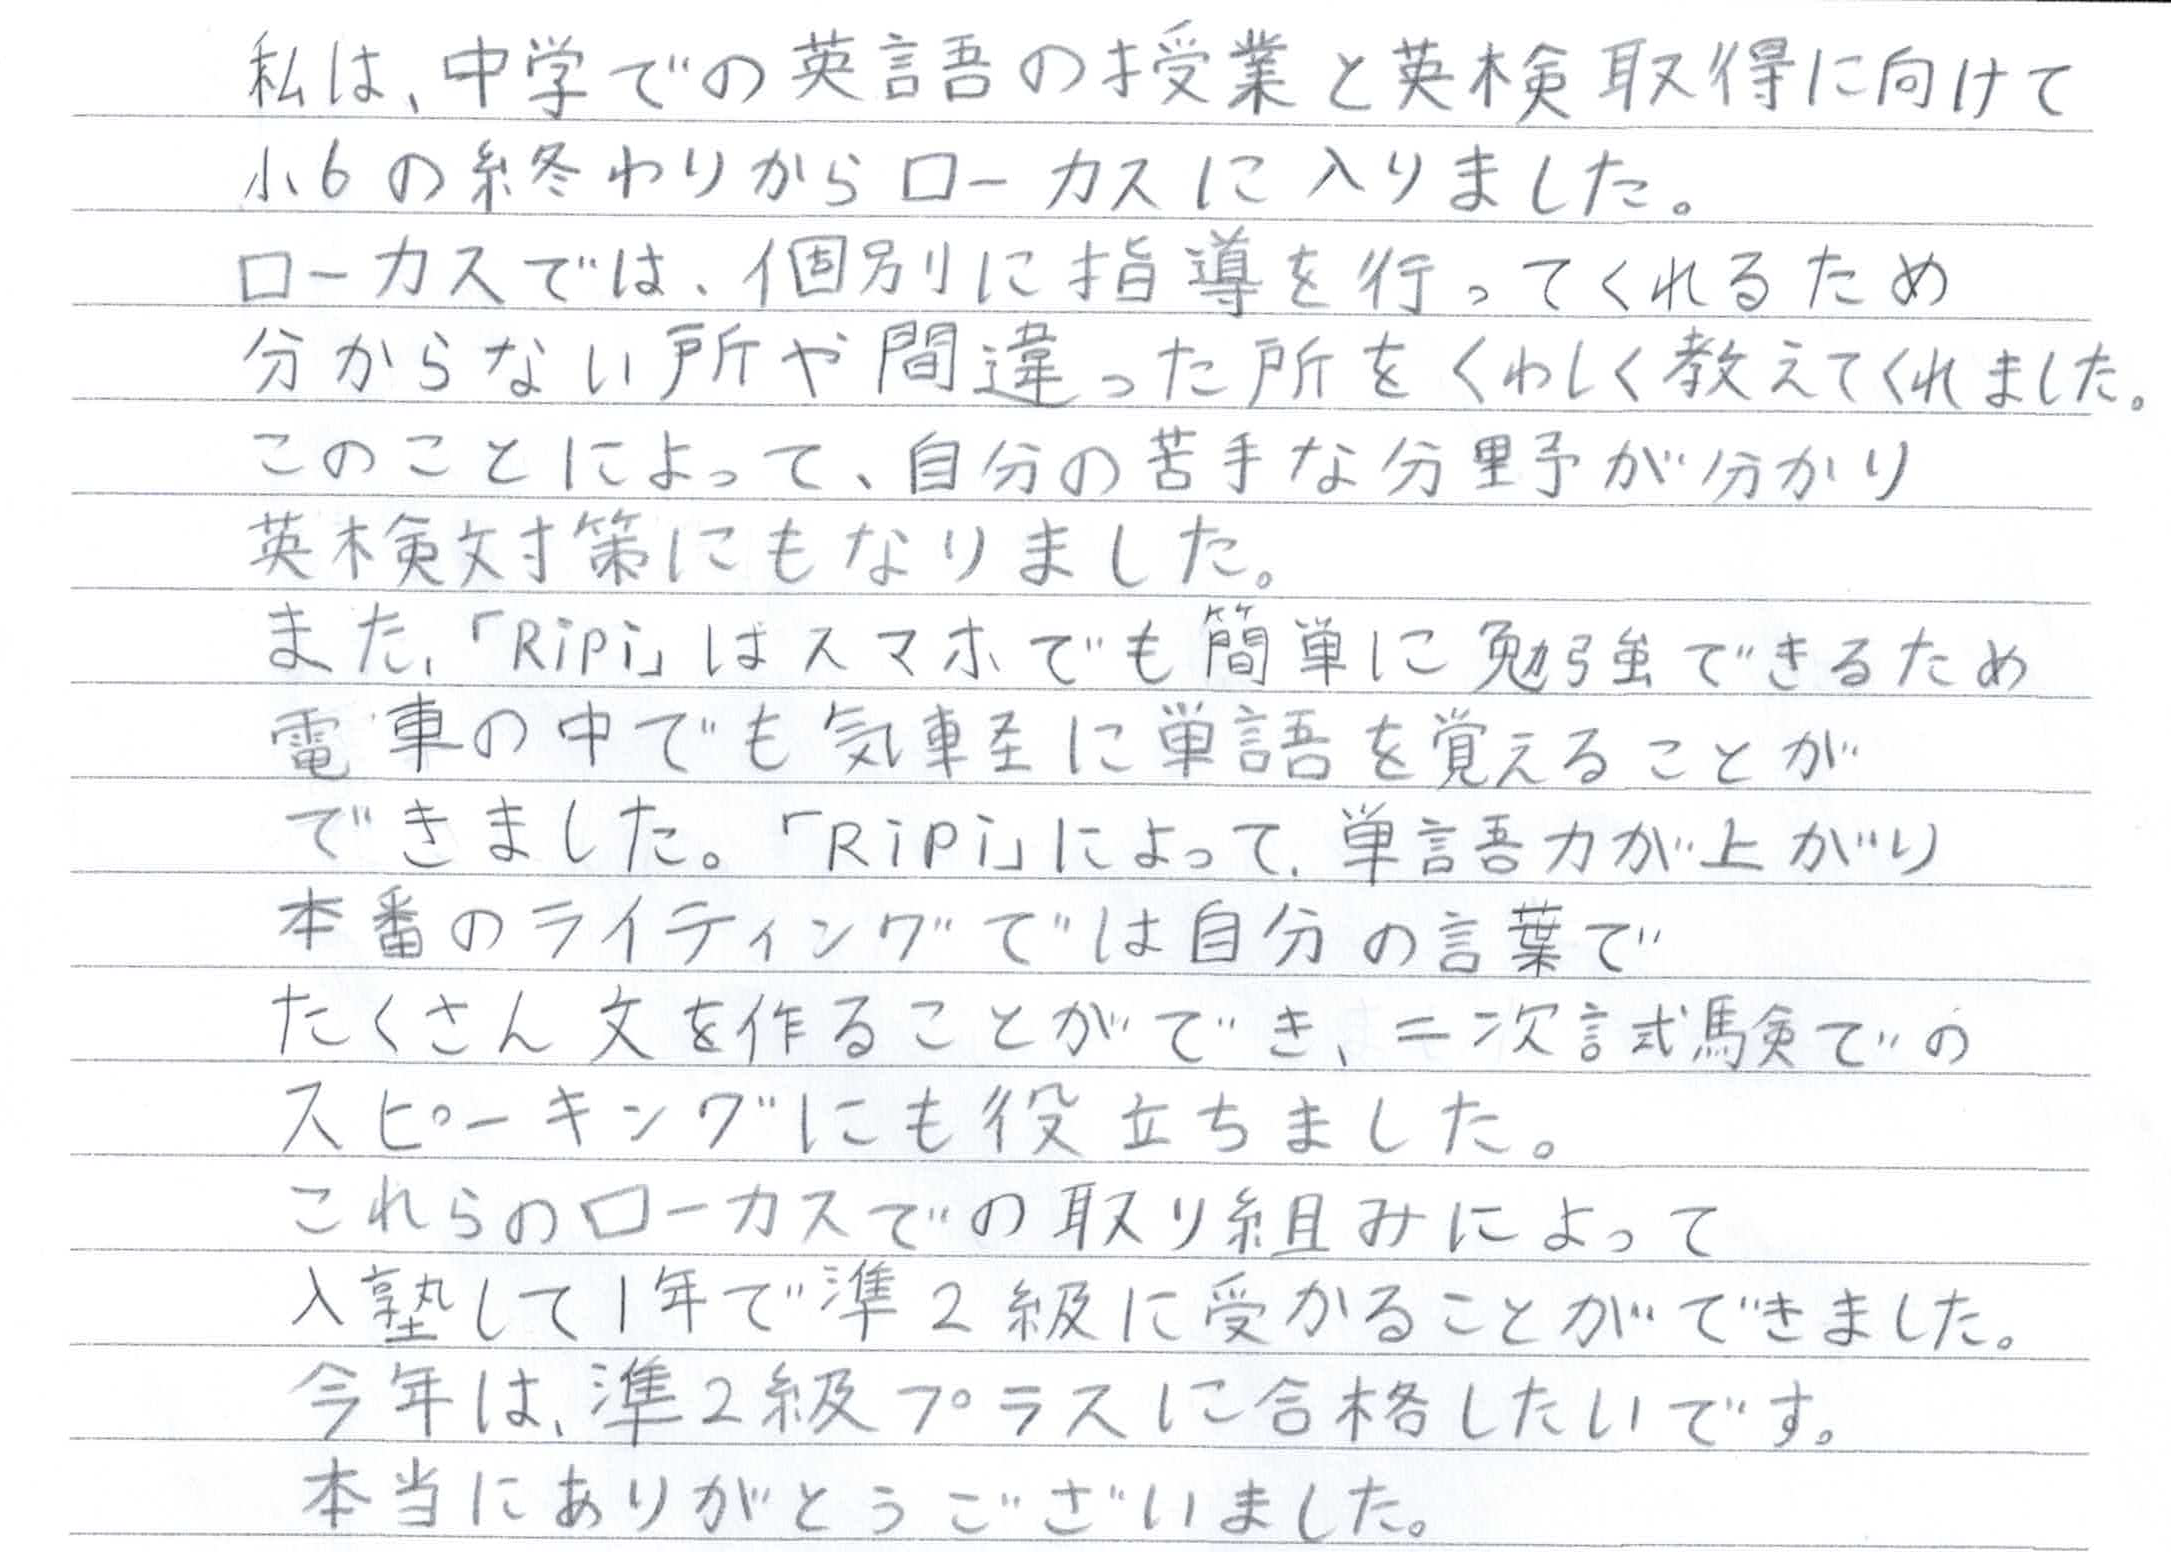 私は、中学での英語の授業と英検取得に向けて
小6の終わりからローカスに入りました。
ローカスでは、個別に指導を行ってくれるため
分からない所や間違った所をくわしく教えてくれました。
このことによって、自分の苦手な分野が分かり
英検対策にもなりました。
また、「Ripi」はスマホでも簡単に勉強できるため
電車の中でも気軽に単語を覚えることが
できました。「Ripi」によって、単語力が上がり
本番のライティングでは自分の言葉で
たくさん文を作ることができ、二次試験での
スピーキングにも役立ちました。
これらのローカスでの取り組みによって
入塾して1年で準2級に受かることができました。
今年は、準2級プラスに合格したいです。
本当にありがとうございました。